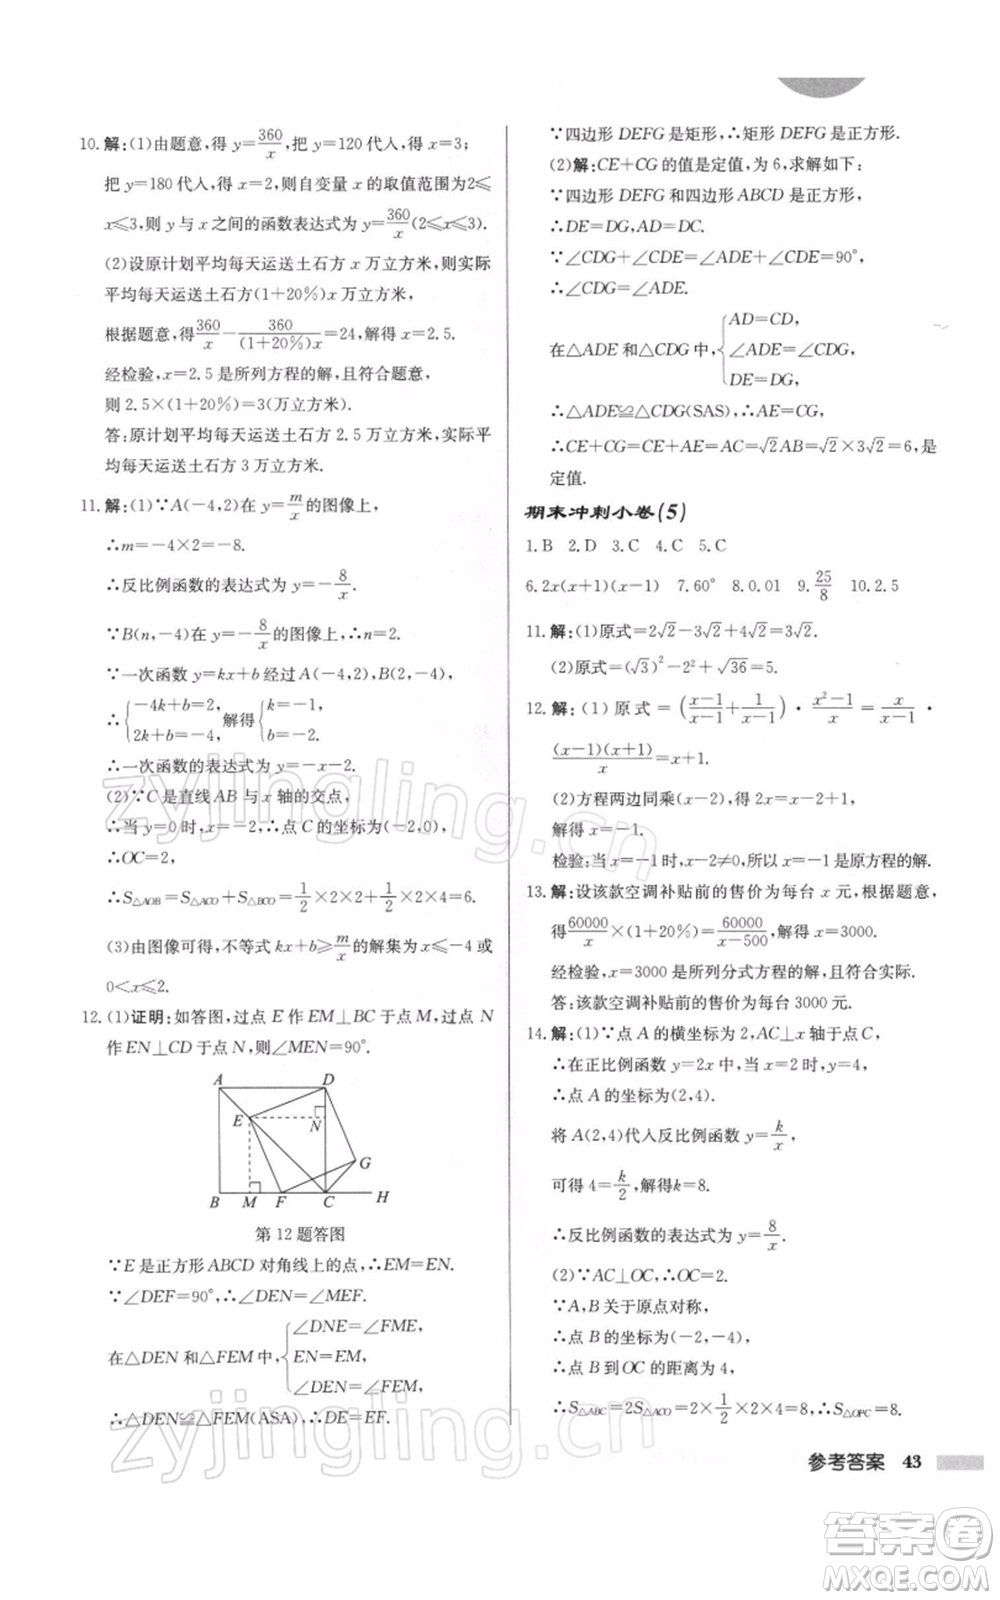 10. 解:(1)由题意,得 y=360/x,把 y=120 代入,得 x=3;
把 y=180 代入,得 x=2,则自变量 x 的取值范围为2≤
x≤3,则 y 与 x 之间的函数表达式为 360/x (2≤x≤3).
(2)设原计划平均每天运送土石方 x 万立方米,则实际
平均每天运送土石方(1+20%)x 万立方米,
根据题意,得 360/x − 360/((1+20%)x)=24,解得 x=2.5.
经检验,x=2.5 是所列方程的解,且符合题意,
则 2.5×(1+20%)=3(万立方米).
答:原计划平均每天运送土石方 2.5 万立方米,实际平
均每天运送土石方 3 万立方米.
11. 解:(1)∵A(−4,2)在 y=m/x 的图像上,
∴m=−4×2=−8.
∴反比例函数的表达式为 y=−8/x.
∵B(n,−4)在 y=−8/x 的图像上,∴n=2.
∵一次函数 y=kx+b 经过 A(−4,2),B(2,−4),
∴{−4k+b=2, 2k+b=−4, 解得{k=−1, b=−2.
∴一次函数的表达式为 y=−x−2.
(2)∵C 是直线 AB 与 x 轴的交点,
∴当 y=0时,x=−2,∴点 C 的坐标为(−2,0),
∴OC=2,
∴S△AOB=S△ACO+S△BCO=1/2×2×2+1/2×2×4=6.
(3)由图像可得,不等式 kx+b≥m/x 的解集为x≤−4或
0<x≤2.
12. (1)证明:如答图,过点 E 作 EM⊥BC 于点 M,过点 N
作 EN⊥CD 于点 N,则∠MEN=90°.
A D
E N
G
B M F C H
第 12 题答图
∵E 是正方形 ABCD 对角线上的点,∴EM=EN.
∵∠DEF=90°,∴∠DEN=∠MEF.
在△DEN 和△FEM 中,{∠DNE=∠FME, EN=EM, ∠DEN=∠FEM,
∴△DEN≌△FEM(ASA),∴DE=EF.
∵四边形 DEFG 是矩形,∴矩形 DEFG 是正方形.
(2)解:CE+CG 的值是定值,为 6,求解如下:
∵四边形 DEFG 和四边形 ABCD 是正方形,
∴DE=DG,AD=DC.
∵∠CDG+∠CDE=∠ADE+∠CDE=90°,
∴∠CDG=∠ADE.
在△ADE 和△CDG 中,{AD=CD, ∠ADE=∠CDG, DE=DG,
∴△ADE≌△CDG(SAS),∴AE=CG.
∴CE+CG=CE+AE=AC=√2AB=√2×3√2=6,是
定值.
期末冲刺小卷(5)
1. B 2. D 3. C 4. C 5. C
6. 2x(x+1)(x−1) 7. 60° 8. 0.01 9. 25/8 10. 2.5
11. 解:(1)原式=2√2−3√2+4√2=3√2.
(2)原式=(√3)²−2²+√36=5.
12. 解:(1)原式=((x−1)/(x−1)+1/(x−1))·(x²−1)/x=x/(x−1)·
(x−1)(x+1)/x=x+1.
(2)方程两边同乘(x−2),得 2x=x−2+1,
解得 x=−1.
检验:当 x=−1时,x−2≠0,所以 x=−1是原方程的解.
13. 解:设该款空调补贴前的售价为每台 x 元,根据题意,
得 60000/x×(1+20%)=60000/(x−500),解得 x=3000.
经检验,x=3000 是所列分式方程的解,且符合实际.
答:该款空调补贴前的售价为每台 3000 元.
14. 解:(1)∵点 A 的横坐标为 2,AC⊥x 轴于点C,
∴在正比例函数 y=2x 中,当 x=2 时,y=4,
∴点 A 的坐标为(2,4).
将 A(2,4)代入反比例函数 y=k/x,
可得 4=k/2,解得k=8.
∴反比例函数的表达式为 y=8/x.
(2)∵AC⊥OC,∴OC=2.
∵A,B 关于原点对称,
∴点 B 的坐标为(−2,−4),
∴点 B 到OC 的距离为 4,
∴S△ABC=2S△ACO=2×1/2×2×4=8,∴S△OPC=8.
参考答案 43
zyjingling.cn
zyjingling.cn
答案卷
MXQE.COM